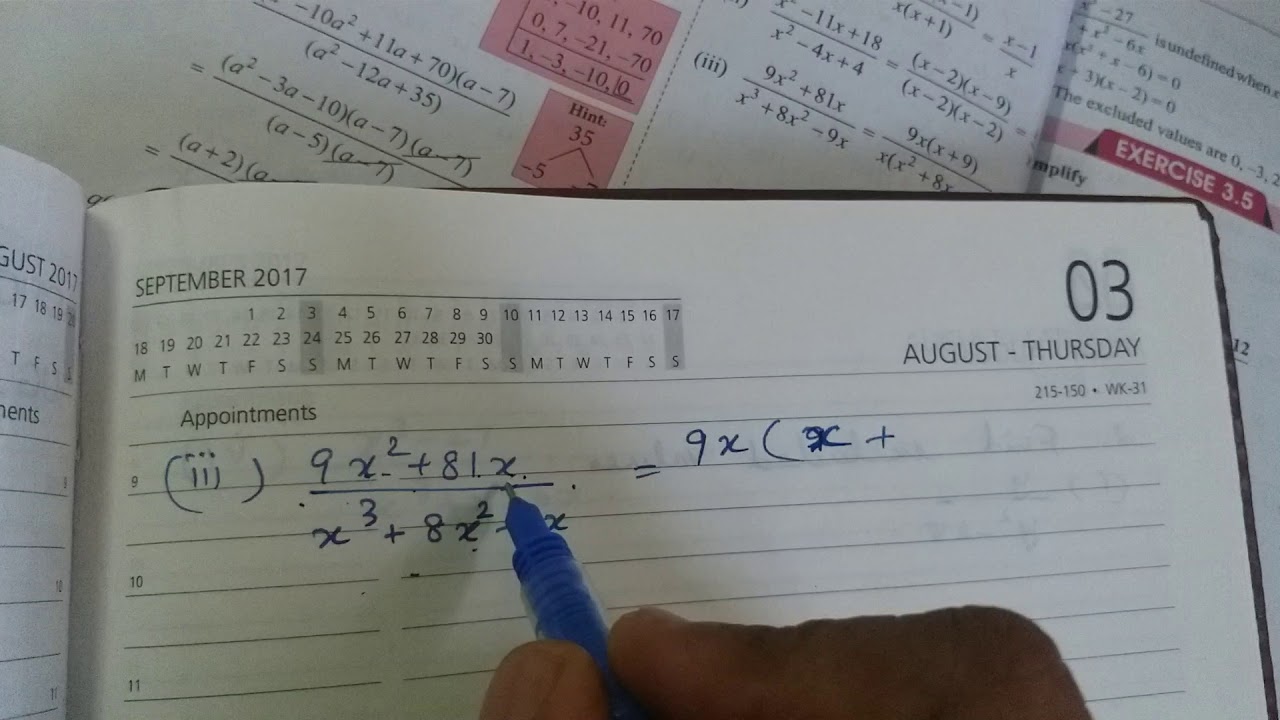 -10a² + 11a + 70)(a – 7)
(a² – 12a + 35)
= (a² – 3a – 10)(a – 7)(a – 7)
(a – 5)(a – 7)
= (a + 2)(a
–10, 11, 70
0, 7, –21, –70
1, –3, –10, 0
Hint:
35
–5
x² – 11x + 18
x² – 4x + 4
= (x – 2)(x – 9)
(x – 2)(x – 2)
=
–1)
x(x + 1)
= x – 1
x
(iii) 9x² + 81x
x³ + 8x² – 9x
= 9x(x + 9)
x(x² + 8x
x³ – 27
+ x² – 6x
is undefined when x
x(x² + x – 6) = 0
+ 3)(x – 2) = 0
The excluded values are 0, –3, 2
EXERCISE 3.5
mplify
12
GUST 2017
17 18 19
T F S S
ments
9
10
11
SEPTEMBER 2017
1 2 3 4 5 6 7 8 9 10 11 12 13 14 15 16 17
18 19 20 21 22 23 24 25 26 27 28 29 30
M T W T F S S M T W T F S S M T W T F S S
03
AUGUST - THURSDAY
215-150 • WK-31
Appointments
9 (iii) 9x² + 81x
= 9x(x +
x³ + 8x² x
10
11